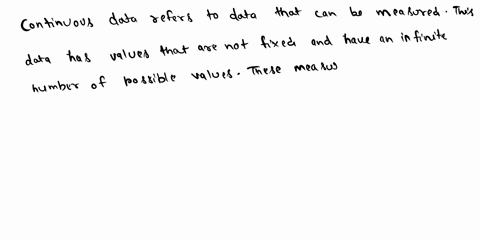 Continuous data refers to data that can be measured. This
data has values that are not fixed and have an infinite
number of possible values. These measu